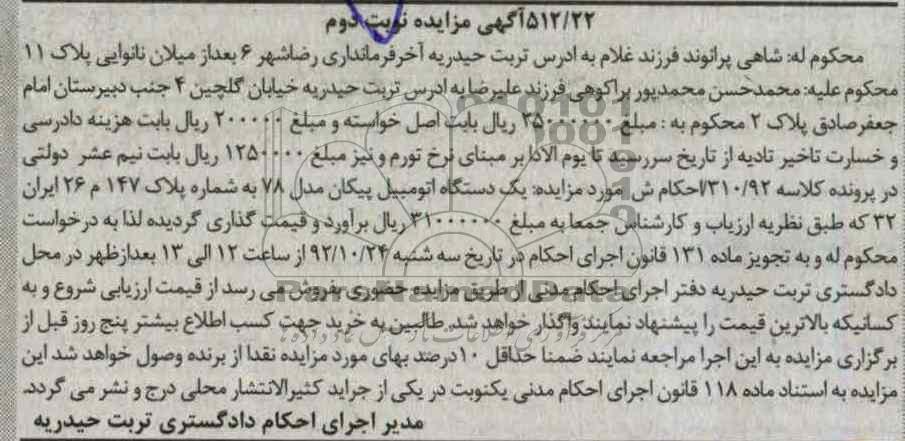 ۵۱۲/۲۲آگهی مزایده نوبت دوم
محکوم له: شاهی پرانوند فرزند غلام به ادرس تربت حیدریه آخرفرمانداری رضاشهر ۶ بعداز میلان نانوایی پلاک ۱۱
محکوم علیه: محمدحسن محمدپور براکوهی فرزند علیرضا به ادرس تربت حیدریه خیابان گلچین ۴ جنب دبیرستان امام
جعفرصادق پلاک ۲ محکوم به : مبلغ ۲۵۰۰۰۰۰۰ ریال بابت اصل خواسته و مبلغ ۲۰۰۰۰۰ ریال بابت هزینه دادرسی
و خسارت تاخیر تادیه از تاریخ سررسید تا یوم الادا بر مبنای نرخ تورم و نیز مبلغ ۱۲۵۰۰۰۰ ریال بابت نیم عشر دولتی
در پرونده کلاسه ۳۱۰/۹۲/احکام ش۱ مورد مزایده: یک دستگاه اتومبیل پیکان مدل ۷۸ به شماره پلاک ۱۴۷ م ۲۶ ایران
۳۲ که طبق نظریه ارزیاب و کارشناس جمعا به مبلغ ۳۱۰۰۰۰۰۰ ریال برآورد و قیمت گذاری گردیده لذا به درخواست
محکوم له و به تجویز ماده ۱۳۱ قانون اجرای احکام در تاریخ سه شنبه ۹۲/۱۰/۲۴ از ساعت ۱۲ الی ۱۳ بعدازظهر در محل
دادگستری تربت حیدریه دفتر اجرای احکام مدنی از طریق مزایده حضوری بفروش می رسد از قیمت ارزیابی شروع و به
کسانیکه بالاترین قیمت را پیشنهاد نمایند واگذار خواهد شد. طالبین به خرید جهت کسب اطلاع بیشتر پنج روز قبل از
برگزاری مزایده به این اجرا مراجعه نمایند ضمنا حداقل ۱۰درصد بهای مورد مزایده نقدا از برنده وصول خواهد شد این
مزایده به استناد ماده ۱۱۸ قانون اجرای احکام مدنی یکنوبت در یکی از جراید کثیرالانتشار محلی درج و نشر می گردد.
مدیر اجرای احکام دادگستری تربت حیدریه